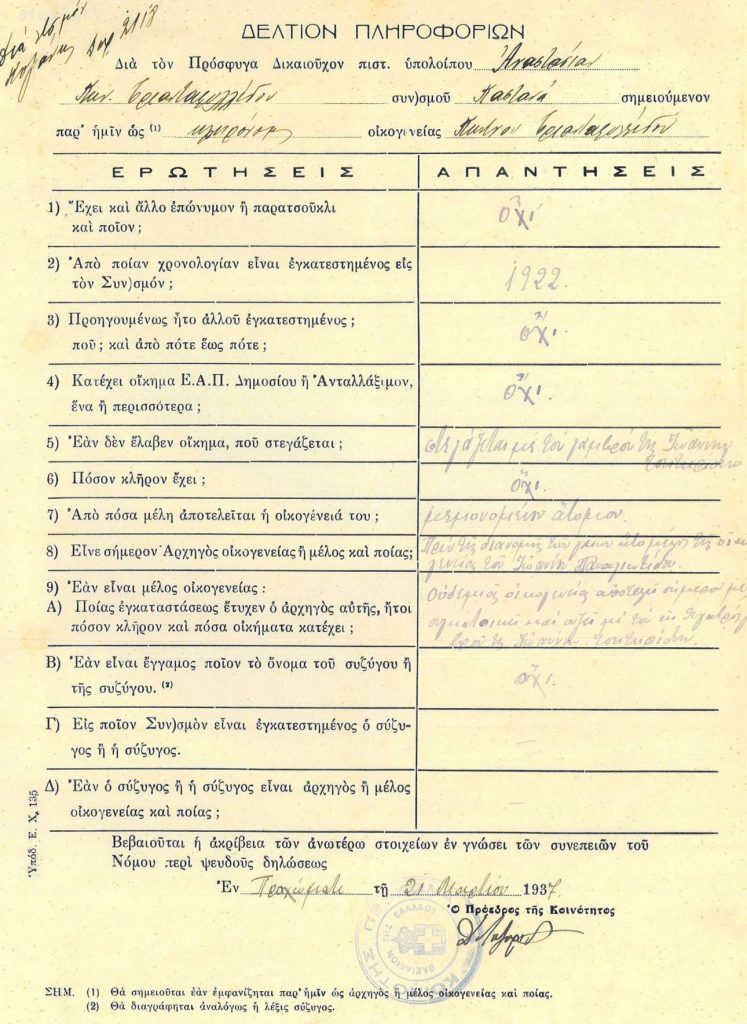 Διὰ
2118
ΔΕΛΤΙΟΝ ΠΛΗΡΟΦΟΡΙΩΝ
Διὰ τὸν Πρόσφυγα Δικαιοῦχον πιστ. ὑπολοίπου Ἀναστασίαν
Κων. Τριανταφυλλίδου συν)σμοῦ σημειούμενον
παρ' ἡμῖν ὡς (1) οἰκογενείας Κων/νου Τριανταφυλλίδου
ΕΡΩΤΗΣΕΙΣ ΑΠΑΝΤΗΣΕΙΣ
1) Ἔχει καὶ ἄλλο ἐπώνυμον ἢ παρατσοῦκλι
καὶ ποῖον;
ὄχι
2) Ἀπὸ ποίαν χρονολογίαν εἶναι ἐγκατεστημένος εἰς
τὸν Συν)σμόν;
1922.
3) Προηγουμένως ἦτο ἀλλοῦ ἐγκατεστημένος;
ποῦ; καὶ ἀπὸ πότε ἕως πότε;
ὄχι.
4) Κατέχει οἴκημα Ε.Α.Π. Δημοσίου ἢ Ἀνταλλάξιμον,
ἕνα ἢ περισσότερα;
ὄχι.
5) Ἐὰν δὲν ἔλαβεν οἴκημα, ποῦ στεγάζεται;
στεγάζεται μὲ τὸν γαμβρόν της Ἰωάννην
6) Πόσον κλῆρον ἔχει;
ὄχι.
7) Ἀπὸ πόσα μέλη ἀποτελεῖται ἡ οἰκογένειά του;
μεμονομένον ἄτομον.
8) Εἶνε σήμερον Ἀρχηγὸς οἰκογενείας ἢ μέλος καὶ ποίας;
Πρὶν τῆς διανομῆς τῶν γαιῶν μέλος τῆς οἰκο
γενείας τοῦ Ἰωάννη
9) Ἐὰν εἶναι μέλος οἰκογενείας:
Α) Ποίας ἐγκαταστάσεως ἔτυχεν ὁ ἀρχηγὸς αὐτῆς, ἤτοι
πόσον κλῆρον καὶ πόσα οἰκήματα κατέχει;
Οὐδεμιᾶς οἰκογενείας ἀποτελεῖ σήμερον
καὶ ζῇ μὲ τὸν
τῆς Ἰωάννην
Β) Ἐὰν εἶναι ἔγγαμος ποῖον τὸ ὄνομα τοῦ συζύγου ἢ
τῆς συζύγου. (2)
ὄχι.
Γ) Εἰς ποῖον Συν)σμὸν εἶναι ἐγκατεστημένος ὁ σύζυ-
γος ἢ ἡ σύζυγος.
Δ) Ἐὰν ὁ σύζυγος ἢ ἡ σύζυγος εἶναι ἀρχηγὸς ἢ μέλος
οἰκογενείας καὶ ποίας;
Ὑπόδ. Ε. Χ, 135
Βεβαιοῦται ἡ ἀκρίβεια τῶν ἀνωτέρω στοιχείων ἐν γνώσει τῶν συνεπειῶν τοῦ
Νόμου περὶ ψευδοῦς δηλώσεως
Ἐν τῇ 21 Μαρτίου 1937
Ὁ Πρόεδρος τῆς Κοινότητος
ΒΑΣΙΛΕΙΟΝ ΤΗΣ ΕΛΛΑΔΟΣ
ΣΗΜ. (1) Θὰ σημειοῦται ἐὰν ἐμφανίζεται παρ' ἡμῖν ὡς ἀρχηγὸς ἢ μέλος οἰκογενείας καὶ ποίας.
(2) Θὰ διαγράφηται ἀναλόγως ἡ λέξις σύζυγος.